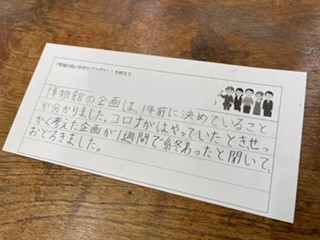 博物館の企画は、1年前に決めていること
が分かりました。コロナがはやっていたときせっ
かく考えた企画が1週間で終わったと聞いて、
おどろきました。